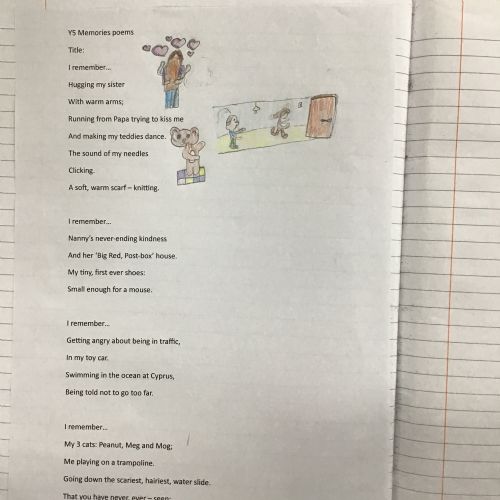 Y5 Memories poems
Title:
I remember...
Hugging my sister
With warm arms;
Running from Papa trying to kiss me
And making my teddies dance.
The sound of my needles
Clicking.
A soft, warm scarf – knitting.
I remember...
Nanny's never-ending kindness
And her 'Big Red, Post-box' house.
My tiny, first ever shoes:
Small enough for a mouse.
I remember...
Getting angry about being in traffic,
In my toy car.
Swimming in the ocean at Cyprus,
Being told not to go too far.
I remember...
My 3 cats: Peanut, Meg and Mog;
Me playing on a trampoline.
Going down the scariest, hairiest, water slide.
That you have never, ever – seen;